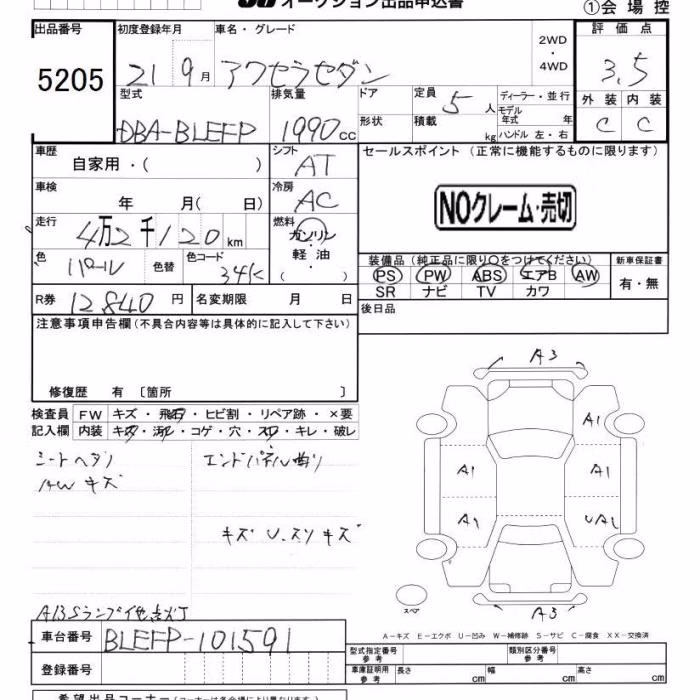 オークション出品申込書
①会場控
出品番号 初度登録年月 車名・グレード 2WD・4WD 評価点
5205 21 9月 アクセラセダン 3.5
型式 排気量 ドア 定員 5人 ディーラー・並行 外装 内装
DBA-BLEFP 1990cc 形状 積載 kg モデル年式 年 ハンドル 左・右 C C
車歴 自家用・( ) シフト AT セールスポイント (正常に機能するものに限ります)
車検 年 月( 日) 冷房 AC NOクレーム・売切
走行 4万2千120km 燃料 ガソリン・軽油・( )
色 パール 色替 色コード 34K 装備品 (純正品に限り○をつけてください) 新車保証書
PS PW ABS エアB AW 有・無
SR ナビ TV カワ
R券 12840円 名変期限 月 日 後日品
注意事項申告欄(不具合内容等は具体的に記入して下さい)
修復歴 有 〔箇所 〕
A3
検査員 FW キズ・飛石・ヒビ割・リペア跡・×要
記入欄 内装 キズ・汚れ・コゲ・穴・スレ・キレ・破レ
A1
シートヘタリ エンドパネル曲り
AW キズ
A1 A1
A1 UA1
キズ U.スリキズ
スペア
A3
ABSランプ他点灯
A-キズ E-エクボ U-凹み W-補修跡 S-サビ C-腐食 XX-交換済
車台番号 BLEFP-101591 型式指定番号 参考 類別区分番号 参考
登録番号 車庫証明用 参考 長さ cm 幅 cm 高さ cm
希望出品コーナー(コーナーは各会場により異なります)